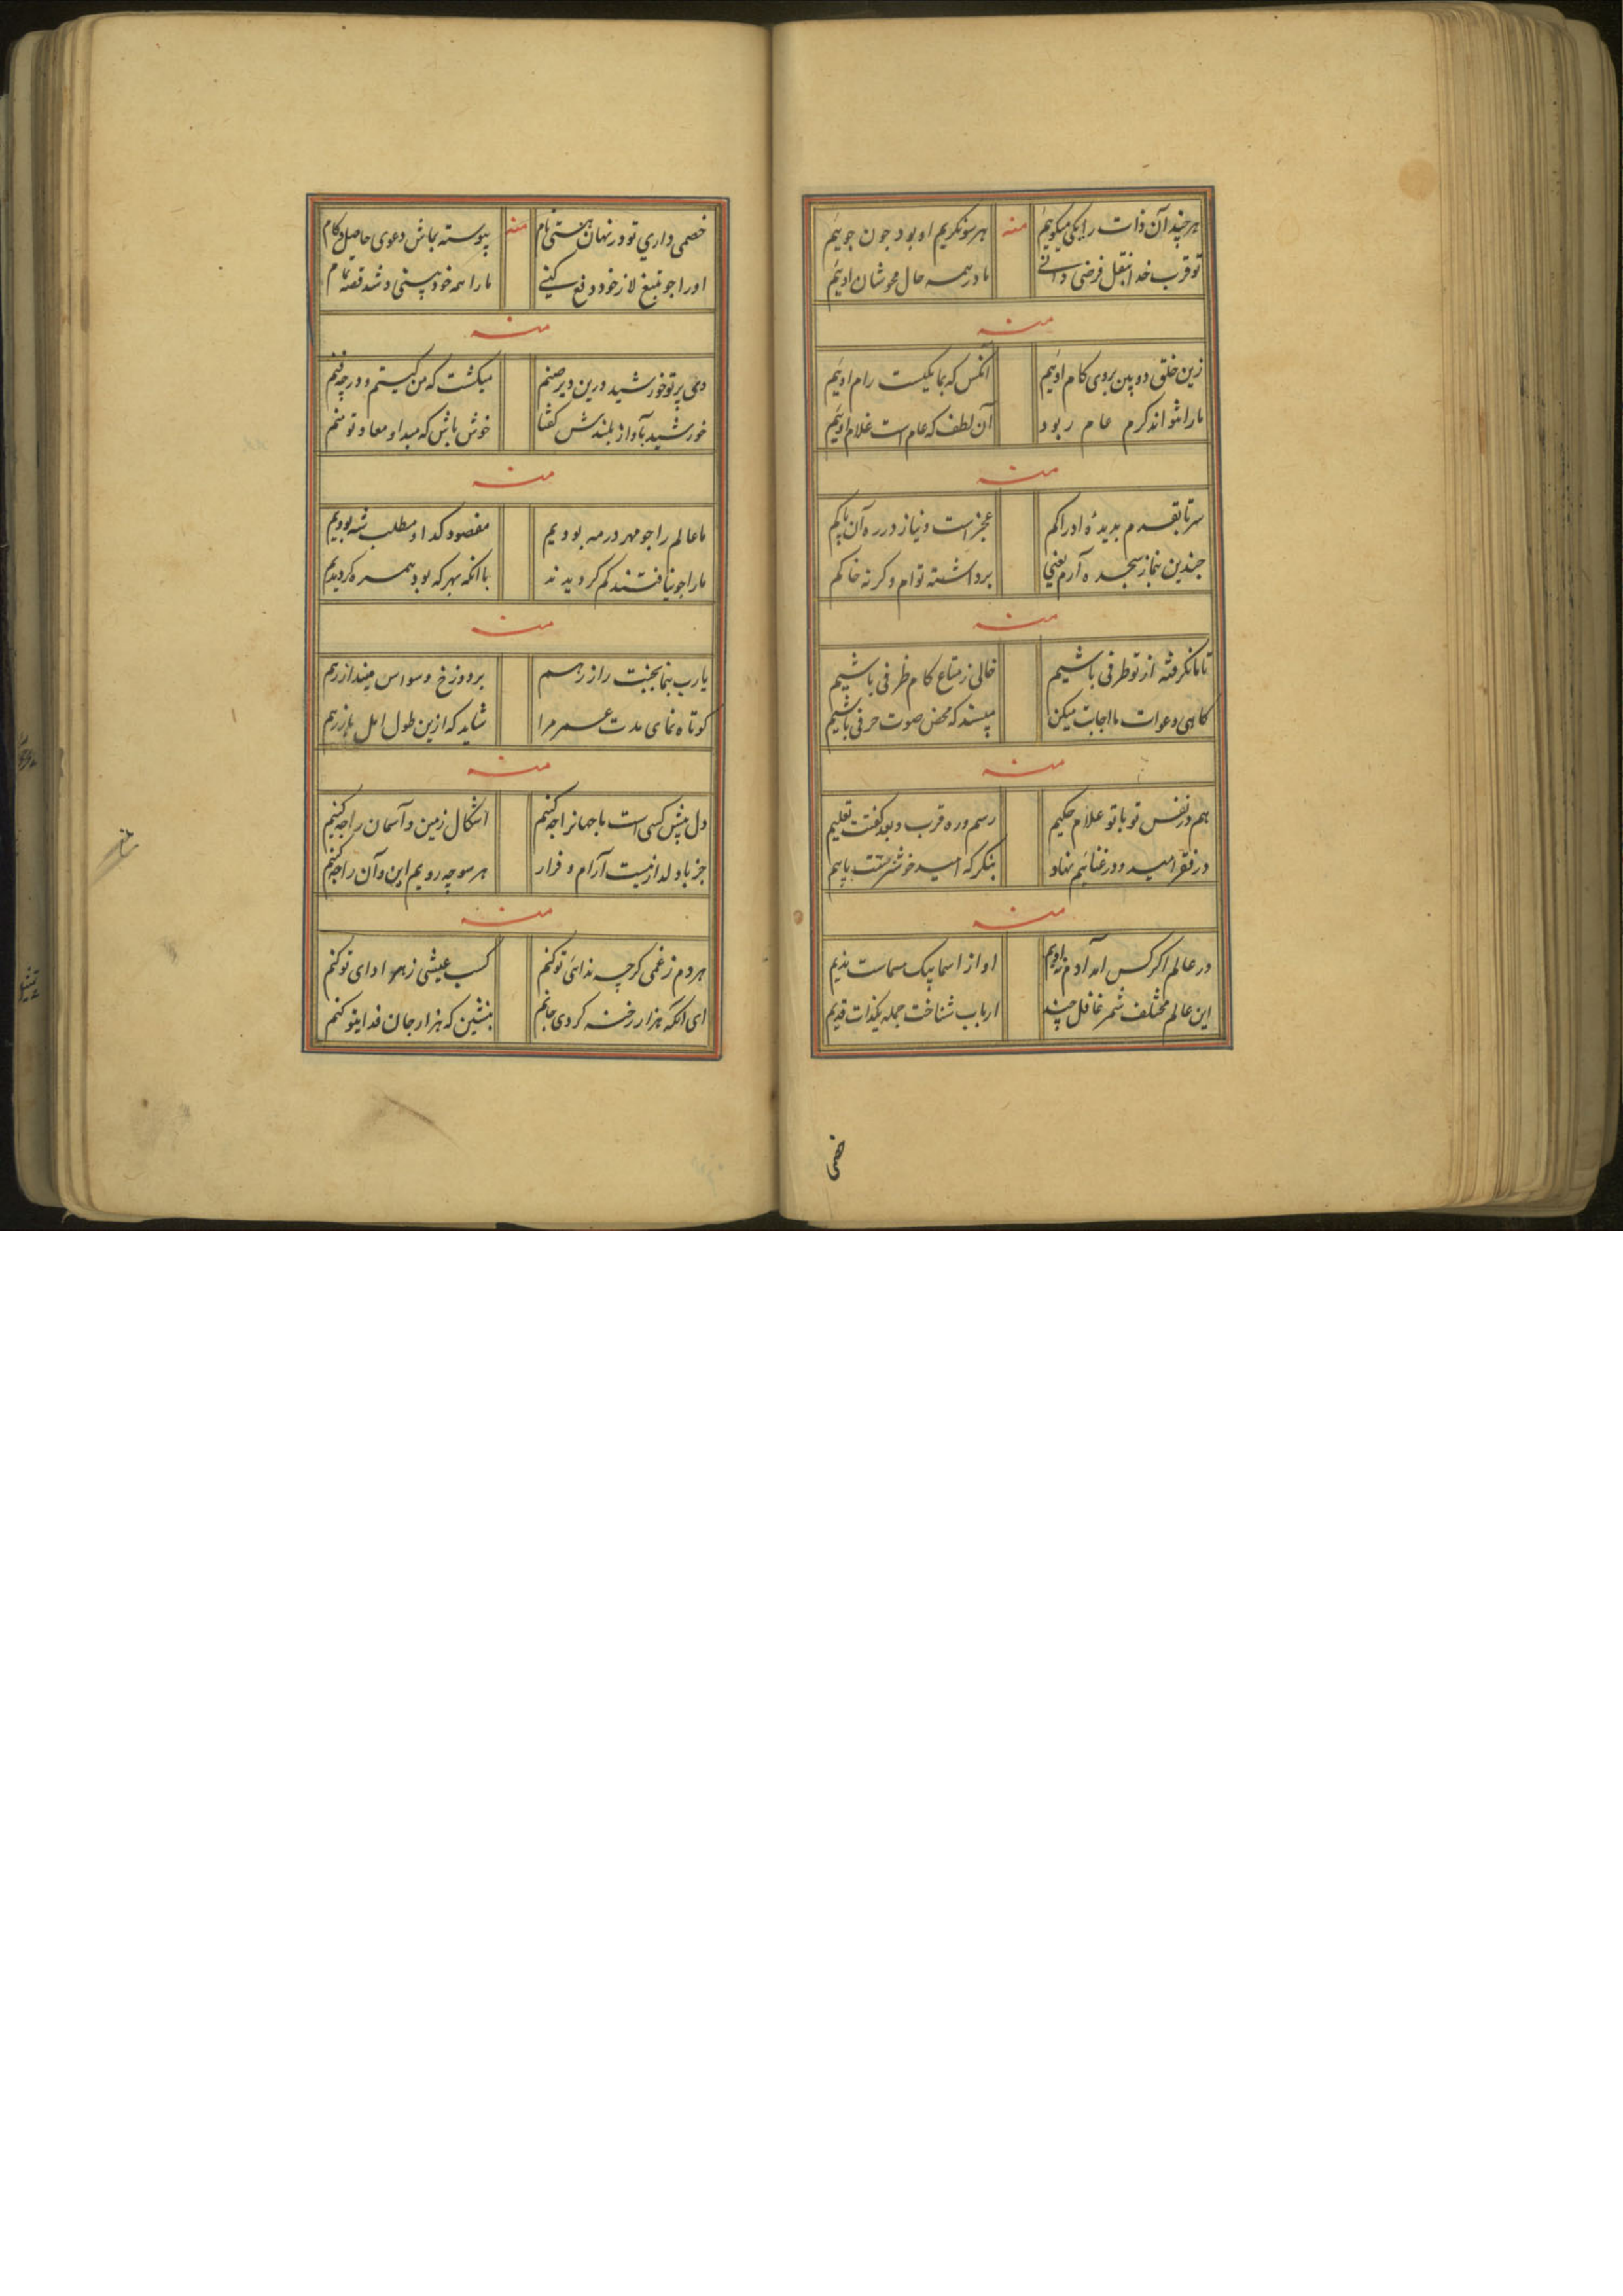 هر چند آن ذات را یکی میکوییم
منه
هر سو نکریم او بود جون جوییم
تو قرب خدا نقل فرضی دانی
ما در همه حال محو شان اوییم
منه
زین خلق دو بین بروی کام اوییم
انکس که بما یکیست رام اوییم
ما را نتواند کرم عام ربود
آن لطف که عام است غلام اوییم
منه
سر تا بقدم بدیدهٔ ادراکم
عجز است و نیاز در ره آن پاکم
جندین بنماز سجده آرم یعنی
برداشته توام و کرنه خاکم
منه
تا ما نکرفته از تو طرفی باشیم
خالی ز متاع کام ظرفی باشیم
کاهی دعوات ما اجابت میکن
مپسند که محض صوت حرفی باشیم
منه
هم در نفس تو با تو علام حکیم
رسم و ره قرب و بعد کفتت تعلیم
در فقر امید و در غنا بیم نهاد
بنکر که امید خوشترستت یا بیم
منه
در عالم اکر کس آمد آدم نادیم
او از اسما پیک مسماست ندیم
این عالم مختلف شمر غافل چند
ارباب شناخت جمله یکذات قدیم
خصمی
خصمی داری تو در نهان هستی نام
منه
پیوسته بجاش دعوی حاصل و کام
او را جو بتیغ لا ز خود دفع کنی
ما را همه خود بینی و شد قصه تمام
منه
دی پرتو خورشید درین دیر صنم
میکشت که من کیستم و در چه فنم
خورشید بآواز بلندش کفتا
خوش باش که مبدا و معاد تو منم
منه
ما عالم را جو مهر در مه بودیم
مقصود کدا و مطلب شه بودیم
ما را جو نیافتند کم کردیدند
با انکه بهر که بود همره کردیدیم
منه
یارب بنما بجنت راز رهم
بر دوزخ وسواس مینداز رهم
کوتاه نمای مدت عمر مرا
شاید که ازین طول امل باز رهم
منه
دل پیش کسی است ما جهانرا چه کنیم
اشکال زمین و آسمان را چه کنیم
جز با دلدار نیست آرام و قرار
هر سو چه رویم این و آن را چه کنیم
منه
هر دم ز غمی کرچه ندای تو کنم
کسب عیشی ز هر ادای تو کنم
ای انکه هزار رخنه کردی جانم
بنشین که هزار جان فدای تو کنم